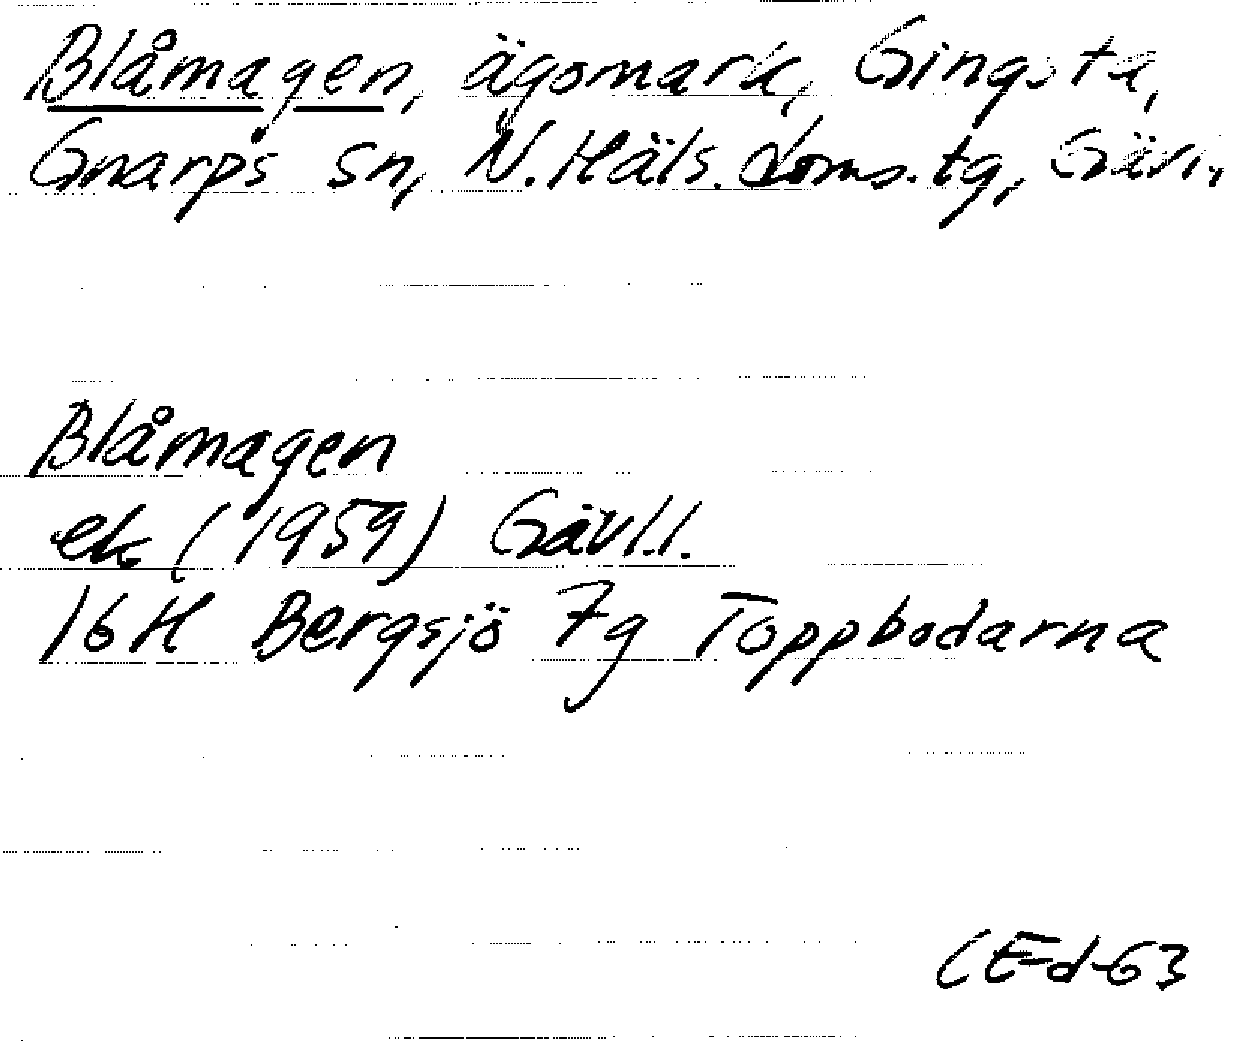 Blåmagen, ägomark, Gingsta,
Gnarps sn, N. Häls. doms. tg, Gävl.,
Blåmagen
ek (1959) Gävl.l.
16H Bergsjö 7g Toppbodarna
CEd-63